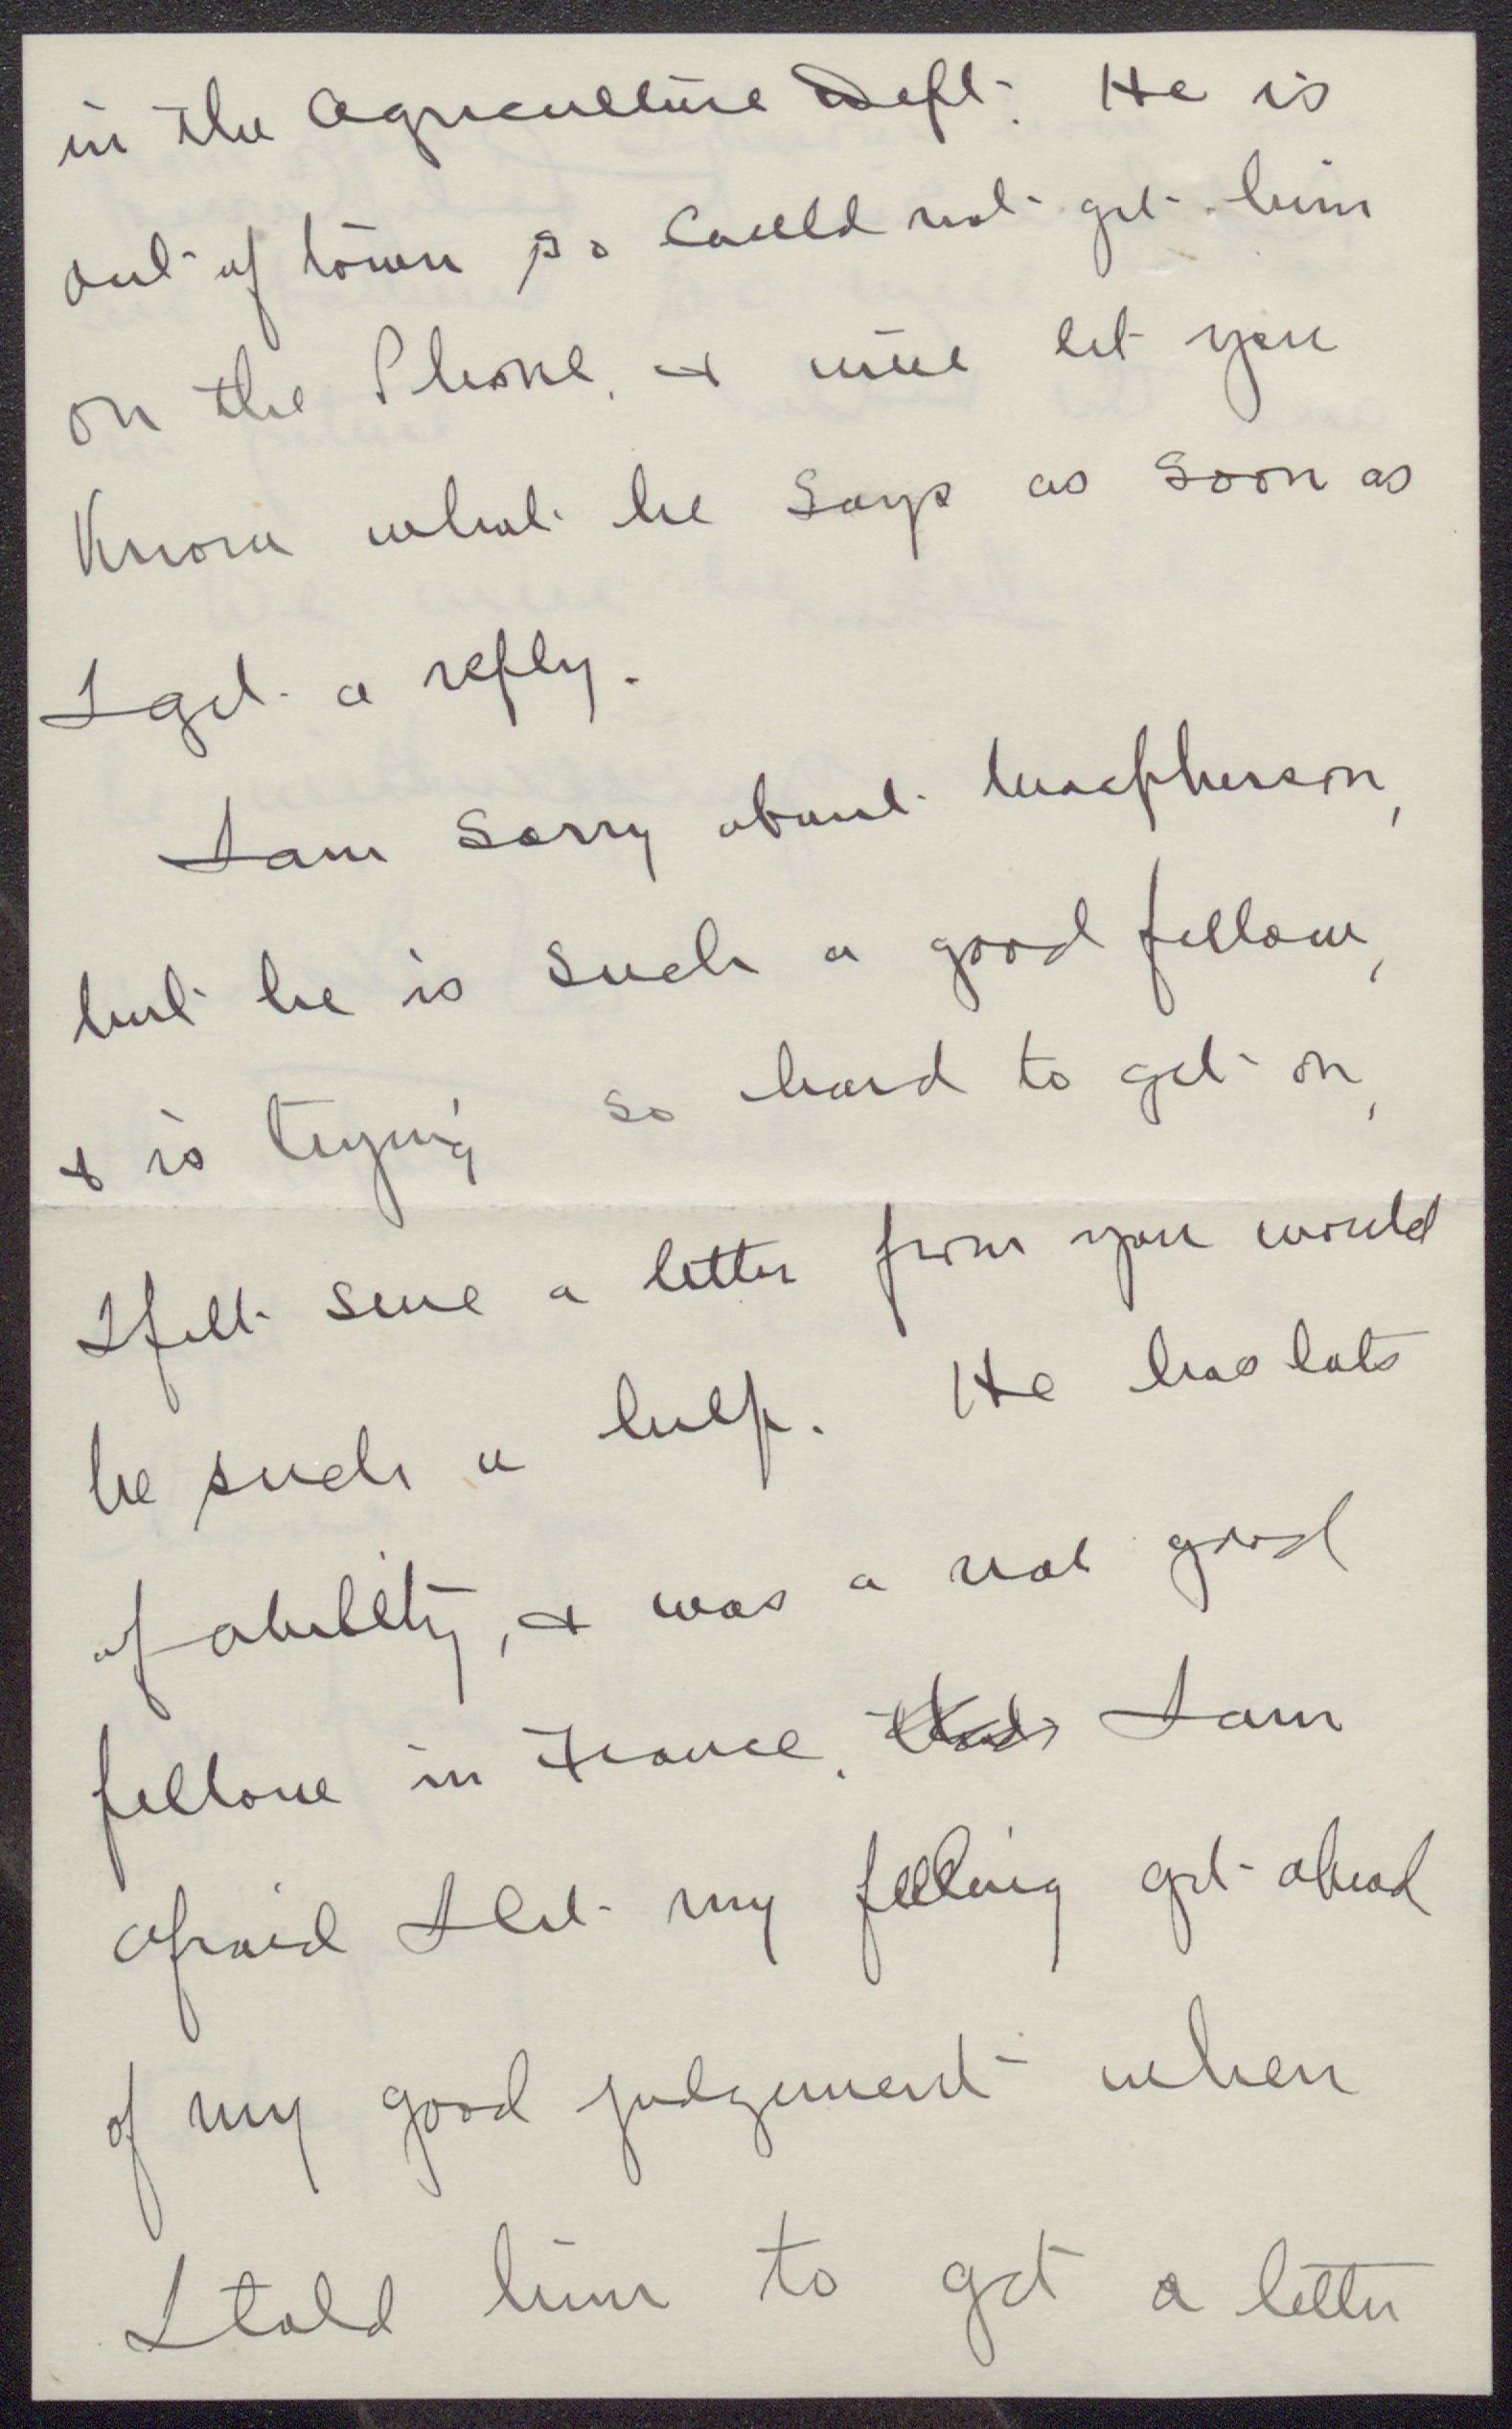 in the Agriculture Dept. He is
out of town so Could not get him
on the Phone, & will let you
Know what he says as soon as
I get a reply.
I am sorry about Macpherson,
but he is such a good fellow,
& is trying so hard to get on,
I felt sure a letter from you would
be such a help. He has lots
of ability, & was a real good
fellow in France. I am
afraid I let my feeling get ahead
of my good judgement when
I told him to get a letter